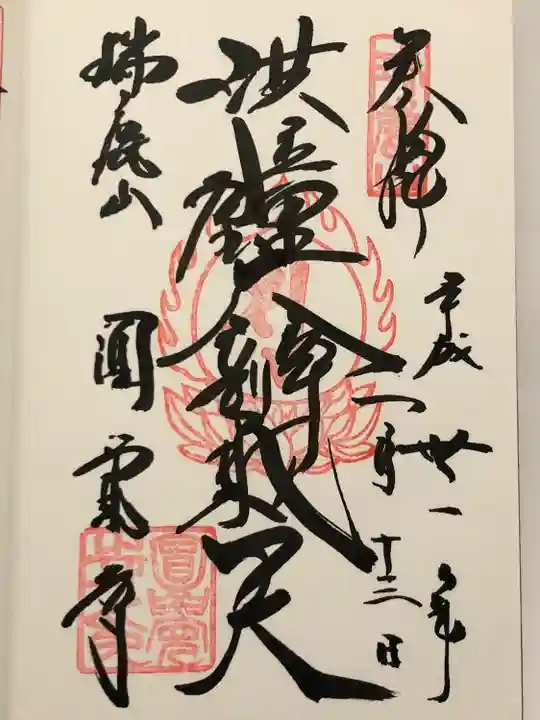 奉拝
平成廿一年
二月十三日
洪鐘辨財天
瑞鹿山
圓覺寺